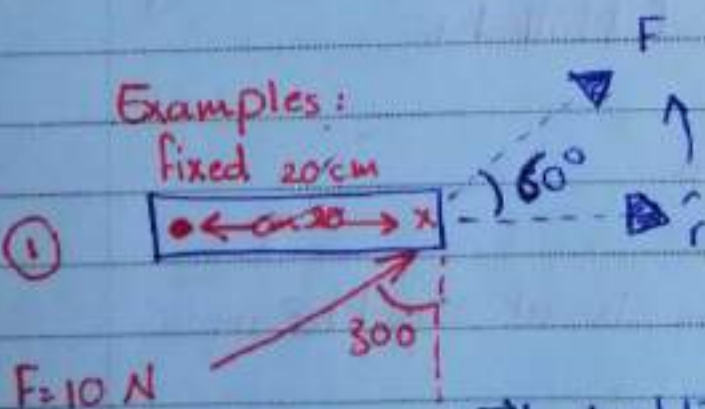 F
Examples:
fixed 20 cm
60°
①
x
300
F=10 N